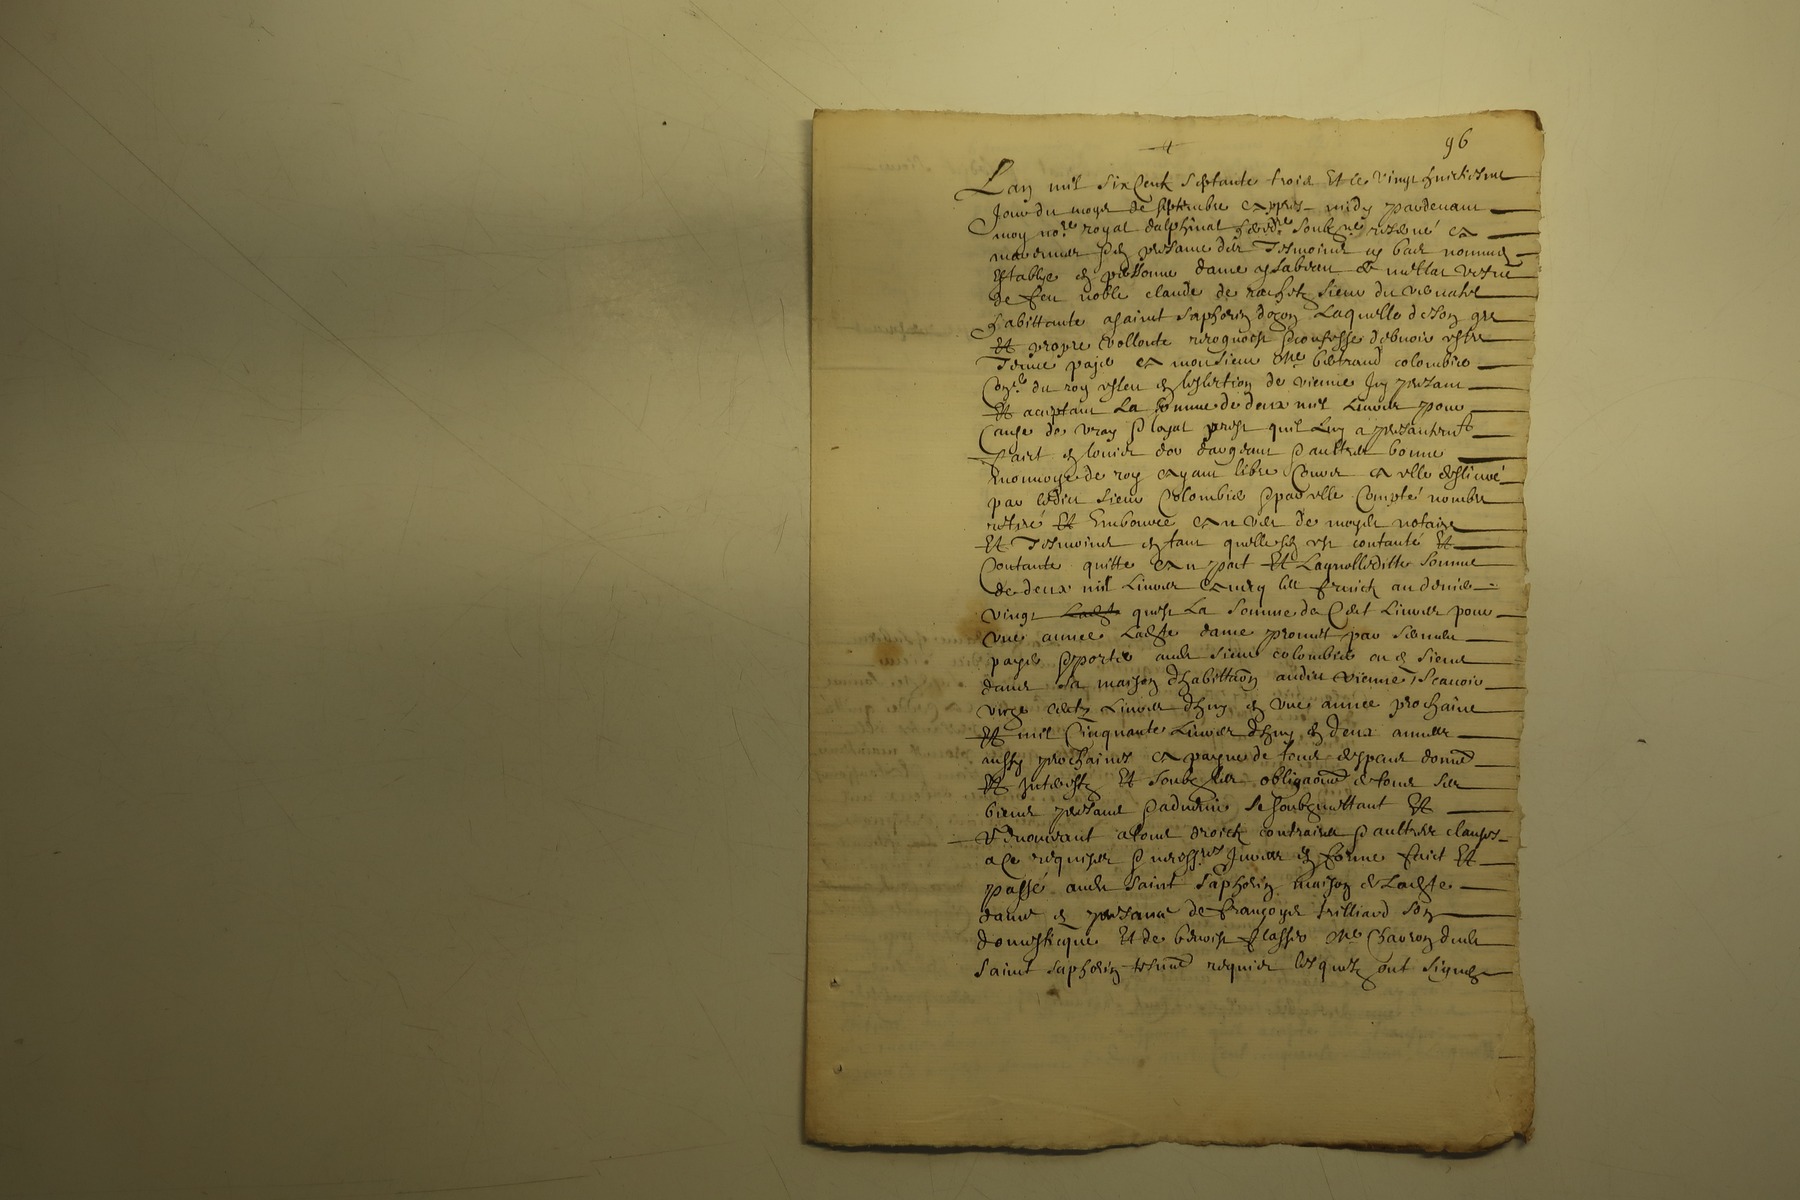 96
Lan mil six Centz Septante trois Et le vingt huictiesme
Jour du moys de septembre apres midy pardevant
moy no.re royal dalphinal heredi.re soubz.né reservé a
presance des Tesmoins cy bas nommez
Establye en personne dame ysabeau de vefve
de feu noble claude de sieur du
habittante a saint Saphorin dozon Laquelle de son gre
Et propre vollonte recognoist & confesse debvoir estre
Tenue payer a monsieur Me bertrand colombier
Con.er du roy esleu en leslection de vienne Icy presant
Et aceptant La somme de deux mil Livres pour
Cause de vray & loyal prest quil Luy a presantemt
faict en louis dor dargeant & aultre bonne
monnoye de roy ayant libre Cours a elle deslivré
par ledit sieur Colombier & par elle Compté nombré
retiré Et Embource a veue de moydt notaire
Et Tesmoins en tant quelle sen est contanté Et
Contante quitte Et Laquelleditte somme
de deux mil Livres les fruictz au denier
vingt quest La somme de Cent Livres pour
une annee Ladte dame promet par serment
payer & porter audt sieur colombier ou es siens
dans sa maison dhabittaon audit vienne scavoir
Livres dhuy en une annee prochaine
Et mil Cinquante Livres dhuy en deux annees
aussy prochaines a payne de tous despens domes
Et interestz Et soubz les obligaons de tous ses
biens presans & advenir se soubzmettant Et
Renoncant a tous droictz contraires & aultres clauses
a Ce requises & necess.res Jurees en forme faict Et
passé audt saint Saphorin maison de Ladte
dame en presance de françoys trilliard son
domesticque Et de benoist Me Charon dudt
saint saphorin tesmns requis lesquelz ont signez